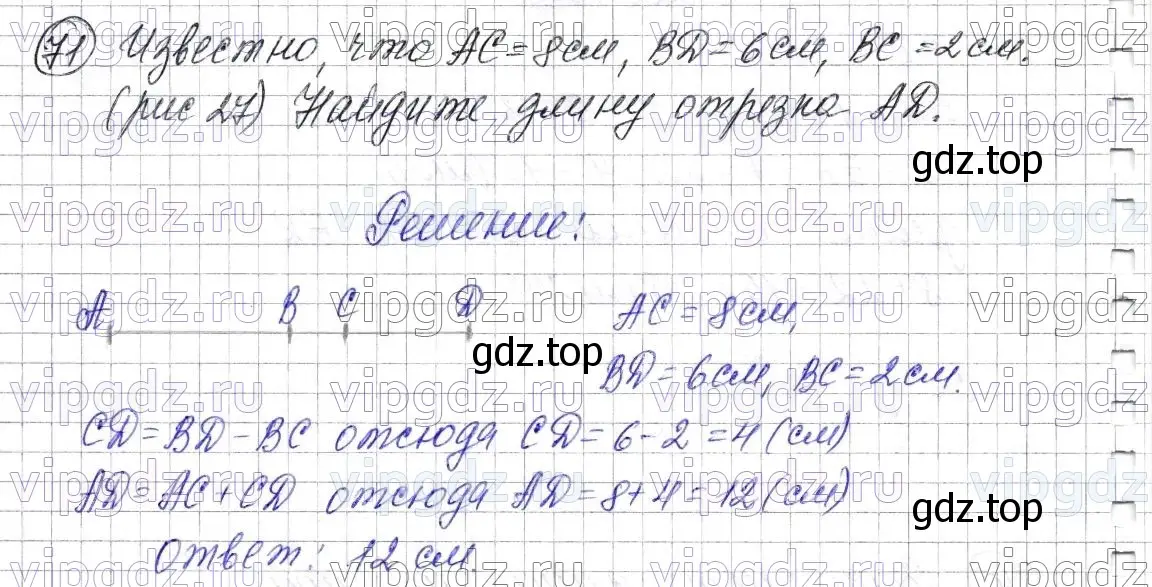 71 Известно, что AC = 8 см, BD = 6 см, BC = 2 см.
(рис 27) Найдите длину отрезка AD.
gdz.top
Решение:
A B C D AC = 8 см,
gdz.top
BD = 6 см, BC = 2 см.
CD = BD - BC отсюда CD = 6 - 2 = 4 (см)
AD = AC + CD отсюда AD = 8 + 4 = 12 (см)
gdz.top
Ответ: 12 см.
vipgdz.ru